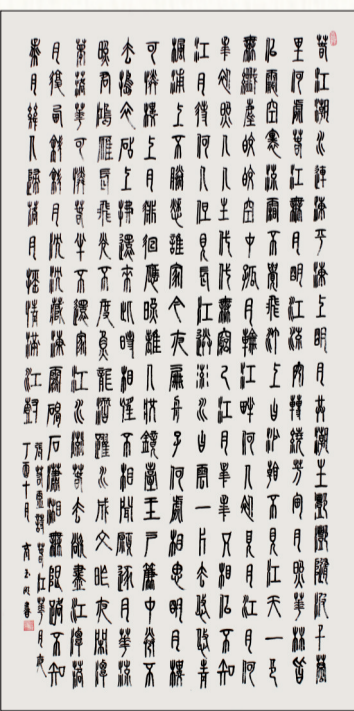 春江潮水連海平海上明月共潮生灩灩隨波千萬
里何處春江無月明江流宛轉繞芳甸月照花林皆
似霰空裏流霜不覺飛汀上白沙看不見江天一色
無纖塵皎皎空中孤月輪江畔何人初見月江月何
年初照人人生代代無窮已江月年年只相似不知
江月待何人但見長江送流水白雲一片去悠悠青
楓浦上不勝愁誰家今夜扁舟子何處相思明月樓
可憐樓上月徘徊應照離人妝鏡臺玉戶簾中卷不
去搗衣砧上拂還來此時相望不相聞願逐月華流
照君鴻雁長飛光不度魚龍潛躍水成文昨夜閑潭
夢落花可憐春半不還家江水流春去欲盡江潭落
月復西斜斜月沉沉藏海霧碣石瀟湘無限路不知
乘月幾人歸落月搖情滿江樹
張若虛詩春江花月夜
丁酉十月